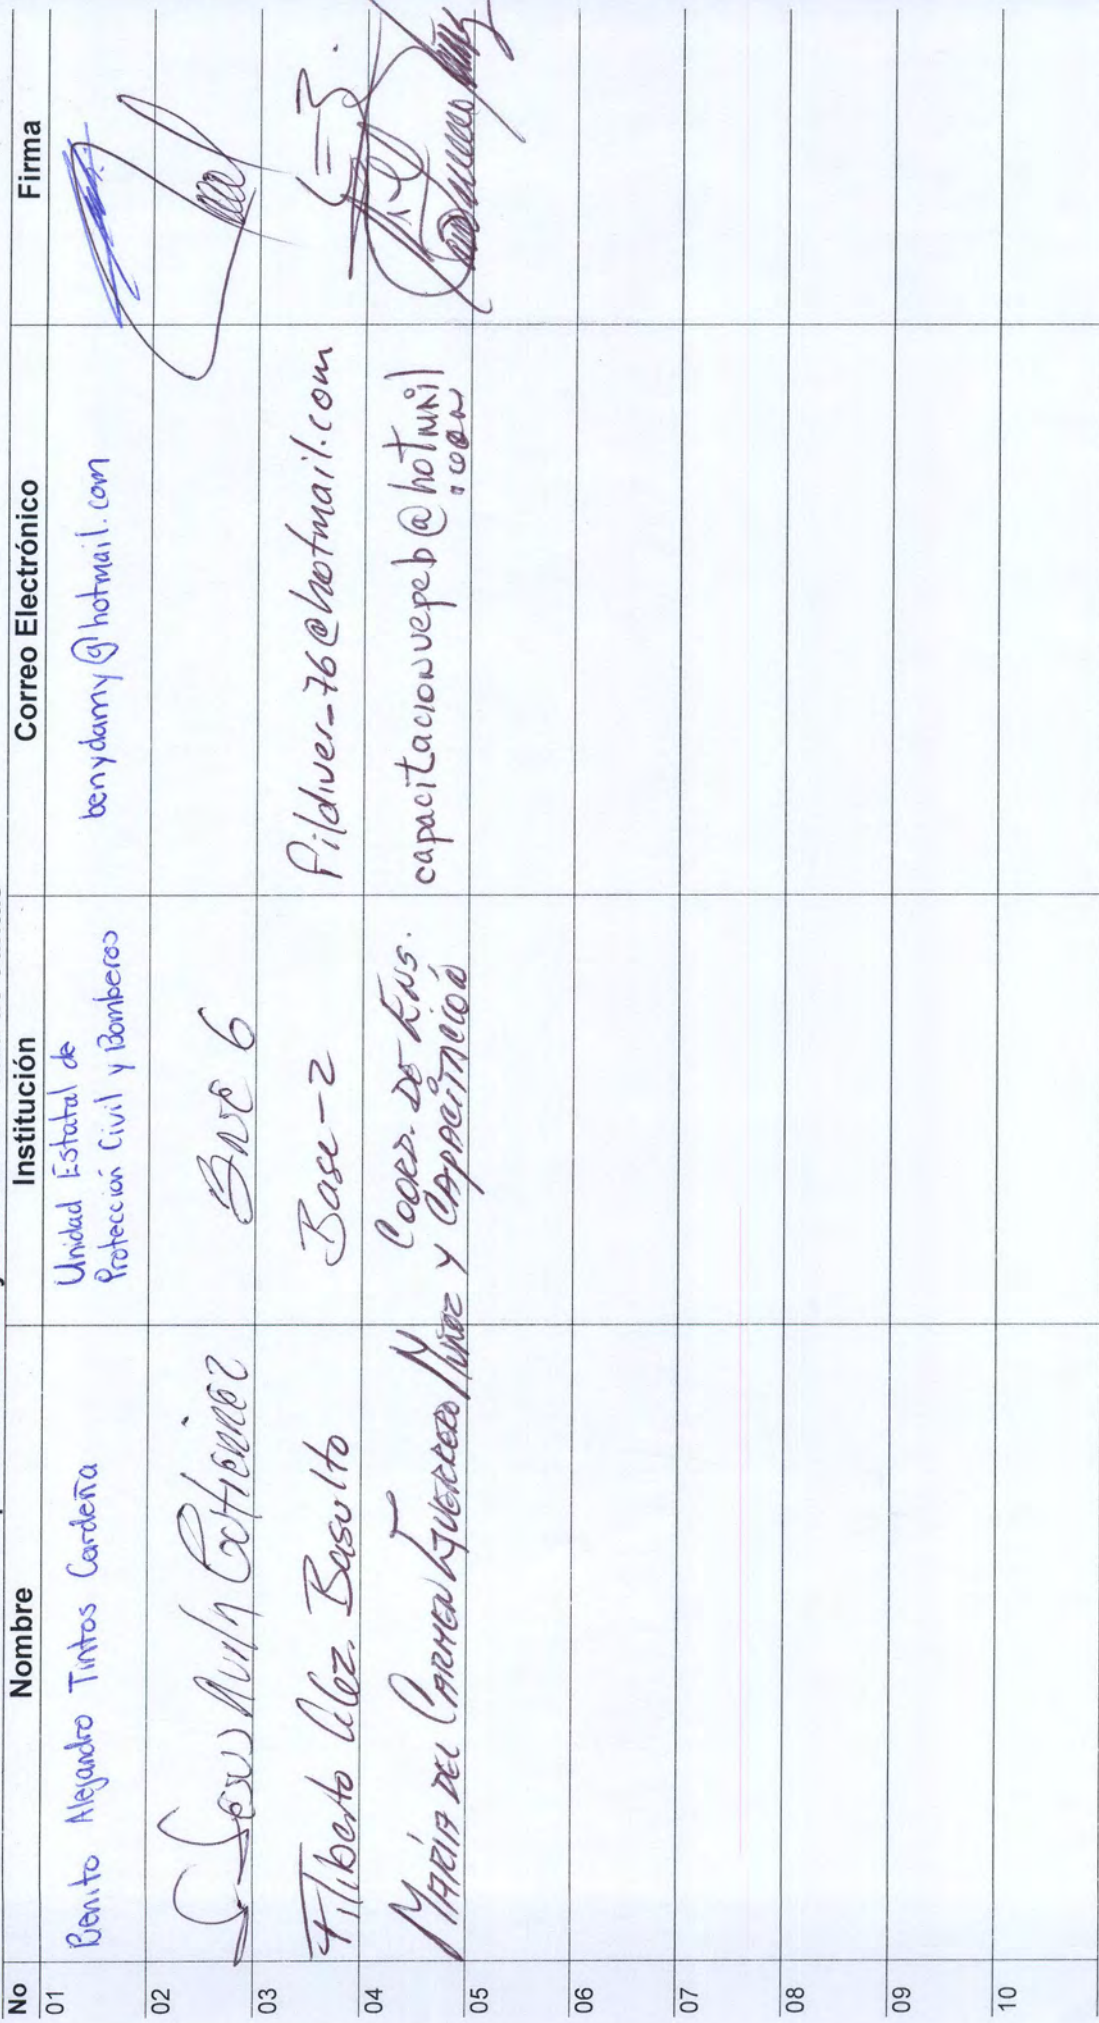 No Nombre Institución Correo Electrónico Firma
01 Benito Alejandro Tintos Cardeña Unidad Estatal de
Protección Civil y Bomberos benydamy@hotmail.com
02 Gutierrez Base 6
03 Filiberto Glez. Basulto Base-2 Pildiver_76@hotmail.com
04 MARÍA DEL CARMEN GUERRERO MUÑOZ COORD. DE ENS.
Y CAPACITACIÓN capacitacionuepcb@hotmail
.com
05
06
07
08
09
10